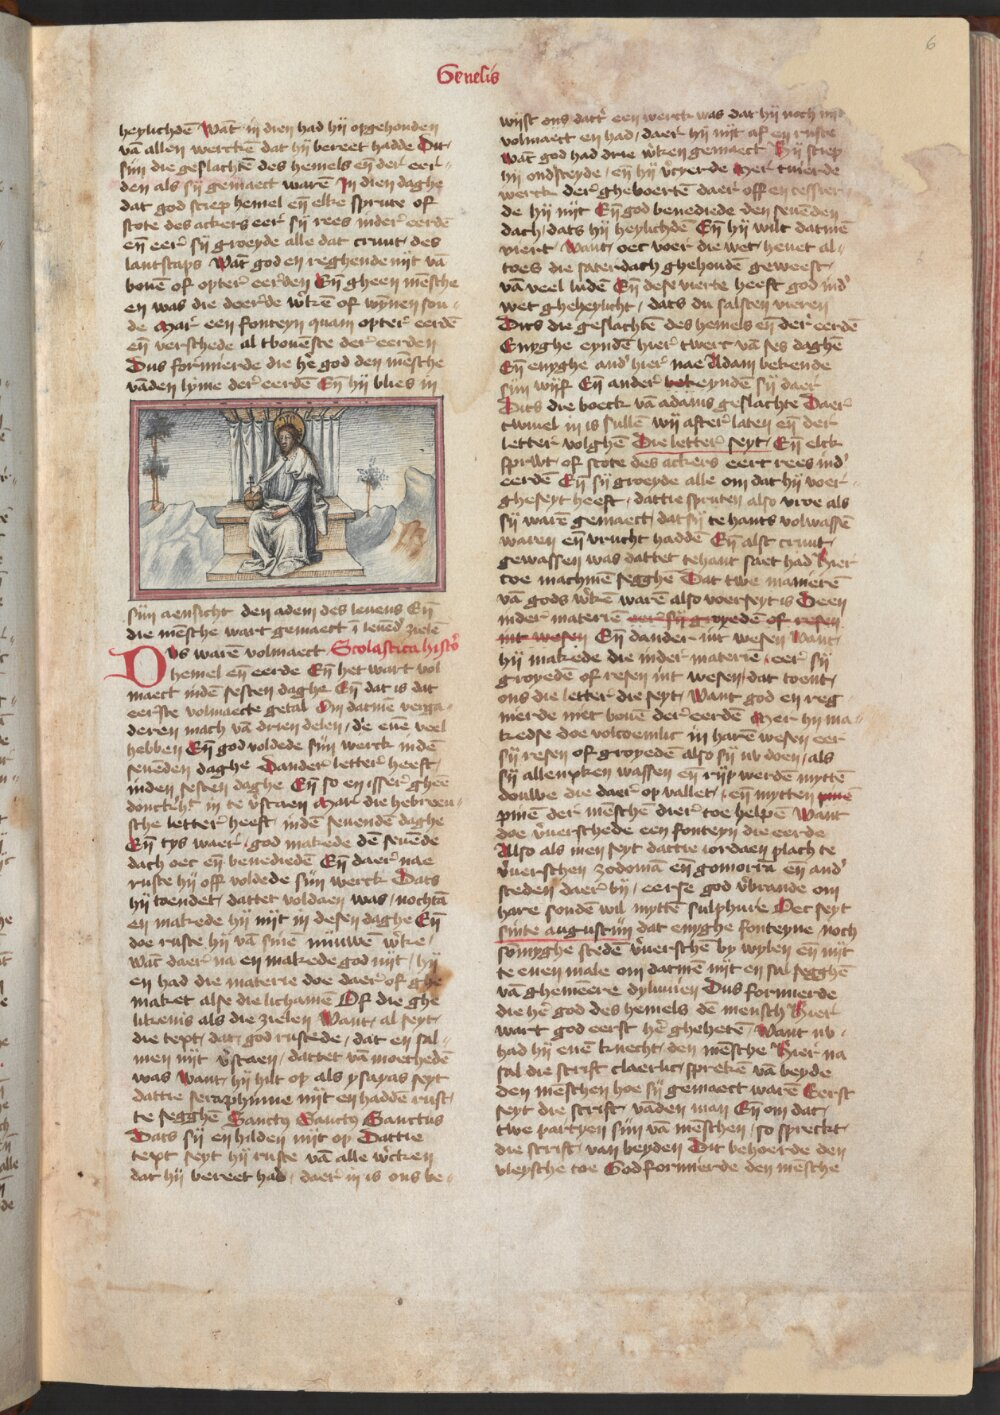 6
Genesis
heylichdē Wāt in dien had hij opgehouden
vā allen werckē dat hij bereet hadde Dit
sijn die geslachtē des hemels eñ der eer-
den als sij gemaect warē In dien daghe
dat god sciep hemel eñ elke sprute of
scote des ackers eer sij rees inder eerdē
eñ eer sij groeyde alle dat cruut des
lantscaps Wāt god en reghende nijt vā
bouē of opter eerden Eñ gheen mēsche
en was die deerde wrkē of wynen sou-
de Mar een fonteyn quam opter eerdē
eñ verschede al tbouēste der eerden
Dus formierde die hē god den mēsche
vāden lyme der eerdē Eñ hij blies in
sijn aensicht den adem des leuens Eñ
die mēsche wart gemaect ī leuēd zielē
Dus warē volmaect Scolastica histo
hemel eñ eerde Eñ het wart vol
maect indē sesten daghe Eñ dat is dat
eerste volmaecte getal On datmē verga-
deren mach vā drien delen / de euē veel
hebben Eñ god voldede sijn werck indē
seuēden daghe Dander letter heeft /
inden sesten daghe Eñ so en isser gheē
donckht in te vstaen Mar die hebreeu-
sche letter heeft indē seuendē daghe
Eñ tys waer / god makede dē seuēde
dach oec eñ benediedē Eñ daer nae
ruste hij off voldede sijn werck Dats
hij toendet / dattet voldaen was / nochtā
en makede hij nijt in desen daghe Eñ
doe ruste hij vā sinē nuuwē wrke /
Wāt daer na en makede god nijt / hij
en had die materie doe daer of ghe
maket alse die lichamē Of die ghe
likenis als die zielen Want / al seyt
die text / dat god rustede / dat en sal
men nijt vstaen / dattet vā moethedē
was Want / hij hilt op als ysayas seyt
dattie seraphinne nijt en haddē rust /
te segghē Sanctus Sanctus Sanctus
Dats sij en hilden nijt op Dattie
text seyt hij ruste vā alle wrcken
dat hij bereet had / daer in is ons be-
wijst ons datt een werck was dat hij noch nijt
volmaect en had / daer hij nijt af en ruste
Wāt god had drie wrken gemaect Hij sciep
hij ondsceyde / eñ hij vcyerde Mer tuierde
werck der gheboertē daer off en cesseer-
de hij nijt Eñ god benediede den seuēden
dach / dats hij heylichdē Eñ hij wilt datmē
viert / Want / oec voer die wet / heuet al-
toes die saterdach ghehoudē geweest /
vā veel ludē Eñ dese vierte heeft god ind
wet gheheylicht / dats du salsten vieren
Dits die geslachtē des hemels eñ der eerdē
Enyghe eyndē hier twert vā ses daghē
Eñ enyghe and hier nae Adam bekende
sijn wijf Eñ ander bekeyndē sij daer
Dits die boeck vā adams geslachte Daer
twiuel in is sullē wij after laten eñ der
letter volghē Die letter seyt / Eñ elck
sprwt of scote des ackers eert rees ind
eerdē Eñ sij groeyde alle om dat hij voer-
gheseyt heeft / dattie spruten also vive als
sij warē gemaect / dat sij te hants volwassē
waren eñ vrucht haddē Eñ alst cruut /
gewassen was dattet tehant saet had Hier
toe machmē segghē Dat twe manierē
vā gods wrkē warē also voerseyt is Deen
inder materiē eer sij groyedē of resen
int wesen Eñ dander int wesen Want /
hij makede die inder materie / eer sij
groyedē of resen int wesen / dat toent /
ons die letter die seyt / Want god en reg-
nierde niet bouē der eerdē Mer hij ma-
kedse doe volcoemlic in harē wesen eer
sij resen of groyedē also sij nv doen / als
sij allenxken wassen eñ rijp werdē myttē
douwe die daer op vallet / eñ mytten pinē
pinē der mēschē dier toe helpē Want
doe vverschede een fonteyn die eerde
Also als men seyt dattie iordaen plach te
vverschen zodomā eñ gomorra eñ and
steden daer bij / eerse god vbrande om
hare sondē wil myttē sulphure Oec seyt
sinte augustijn dat enyghe fonteyne noch
somyghe stedē vverschē by wylen eñ nijt
te euen male om datmē nijt en sal segghē
vā ghemeere dyluuien Dus formierde
die hē god des hemels dē mensch Hier
wart god eerst hē ghehetē / Want nv
had hij euē knecht / den mēsche Hier na
sal die scrift claerlic / sprekē vā beyde
den mēschen hoe sij gemaect warē Eerst
seyt die scrift / vāden man Eñ om dat /
twe partyen sijn vā mēschen / so spreckt
die scrift / van beyden Dit behoerde den
vleysche toe God formierde den mēsche